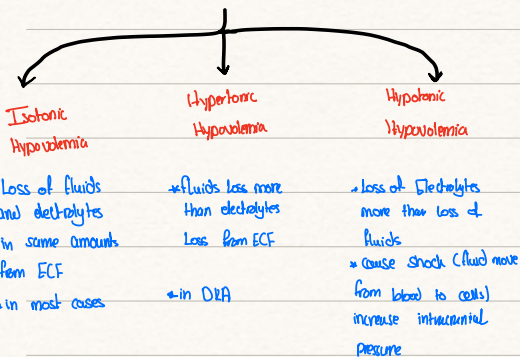 Isotonic
Hypovolemia
Loss of fluids
and electrolytes
in same amounts
from ECF
in most cases
Hypertonic
Hypovolemia
*fluids loss more
than electrolytes
Loss from ECF
*in DKA
Hypotonic
Hypovolemia
*Loss of Electrolytes
more than loss of
fluids
*cause shock (fluid move
from blood to cells)
increase intracranial
pressure